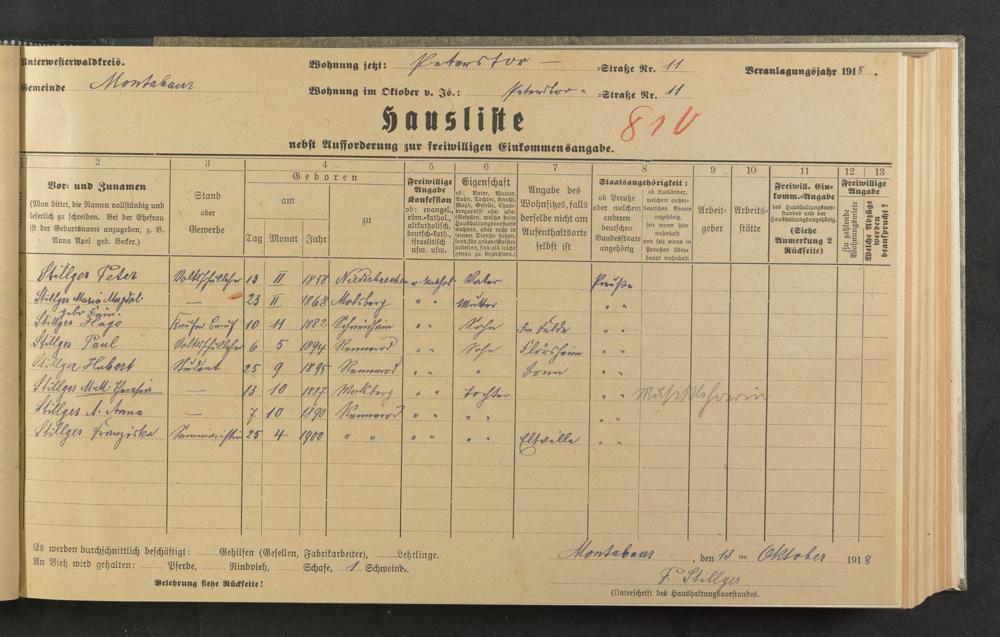 Unterwesterwaldkreis.
Wohnung jetzt: Peterstor - =Straße Nr. 11
Veranlagungsjahr 1918.
Gemeinde Montabaur
Wohnung im Oktober v. Js.: Peterstor- =Straße Nr. 11
Hausliste
nebst Aufforderung zur freiwilligen Einkommensangabe.
2 3 4 5 6 7 8 9 10 11 12 13
Vor- und Zunamen
(Man bittet, die Namen vollständig und
leserlich zu schreiben. Bei der Ehefrau
ist der Geburtsname anzugeben, z. B.
Anna Apel geb. Becker.)
Stand
oder
Gewerbe
Geboren
am zu
Tag Monat Jahr
Freiwillige
Angabe
Konfession
ob: evangel.,
röm.-kathol.,
altkatholisch,
deutsch-kath.,
israelitisch
usw. usw.
Eigenschaft
ob: Vater, Mutter,
Sohn, Tochter, Knecht,
Magd, Geselle,
Angabe des
Wohnsitzes, falls
derselbe nicht am
Aufenthaltsorte
selbst ist
Staatsangehörigkeit:
ob Preuße
oder welchem
anderen
deutschen
Bundesstaate
angehörig
ob Ausländer,
welchem außer-
deutschen Staate
angehörig,
seit wann hier
wohnhaft
und seit wann in
Preußen über-
haupt wohnhaft
Arbeit-
geber
Arbeits-
stätte
Freiwill. Ein-
komm.-Angabe
des Haushaltungsvor-
standes und der
Haushaltungsangehörig.
(Siehe
Anmerkung 2
Rückseite)
Freiwillige
Angabe
Zu zahlende
Wohnungsmiete
Welche Abzüge
werden
beansprucht?
Stillger Peter Volksschullehrer 13 II 1858 Niederbrechen r. kathol. Vater Preuße
Stillger Maria Magdal. — 23 II 1868 Molsberg " " Mutter " "
Stillger Hugo 10 11 1882 " " Sohn " "
Stillger Paul Volksschullehrer 6 5 1894 Rennerod " " Sohn Flörsheim " "
Stillger Hubert Student 25 9 1895 Rennerod " " " Bonn " "
Stillger M.M. Theresia — 13 10 1887 Molsberg " " Tochter " " Musiklehrerin
Stillger A. Anna — 7 10 1890 Rennerod " " " " " "
Stillger Franziska Seminaristin 25 4 1900 " " " " " " Eltville " "
Es werden durchschnittlich beschäftigt: Gehilfen (Gesellen, Fabrikarbeiter), Lehrlinge.
An Vieh wird gehalten: Pferde, Rindvieh, Schafe, 1 Schweine.
Belehrung siehe Rückseite!
Montabaur, den 13 ten Oktober 1918
P. Stillger
(Unterschrift des Haushaltungsvorstandes.